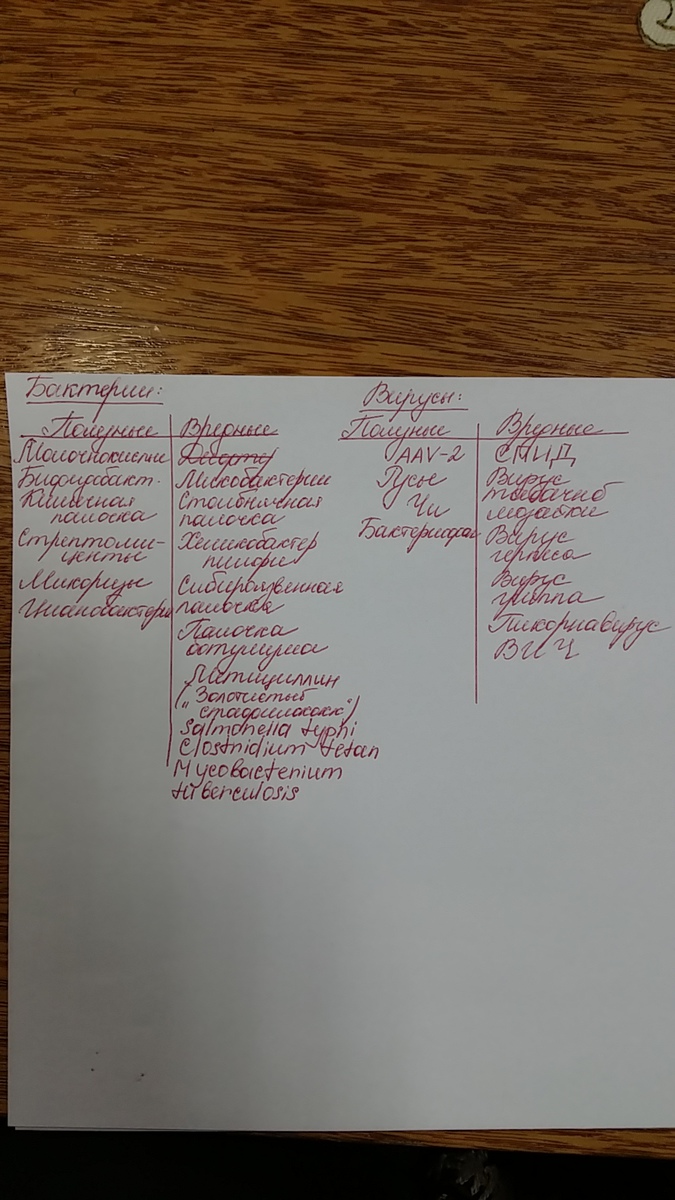 Бактерии:
Полезные
Вредные
Молочнокислые
Бифидобакт.
Кишечная
палочка
Стрептоми-
центы
Микоризы
Цианобактерии
Микобактерии
Столбнячная
палочка
Хеликобактер
пилори
Сибироязвенная
палочка
Палочка
ботулизма
Метициллин
("Золотистый
стафилококк")
Salmonella typhi
Clostridium tetan
Mycobacterium
tuberculosis
Вирусы:
Полезные
Вредные
AAV-2
Гусы
Чи
Бактериофаги
СПИД
Вирус
табачной
мозаики
Вирус
герпеса
Вирус
гриппа
Пикорнавирус
ВИЧ